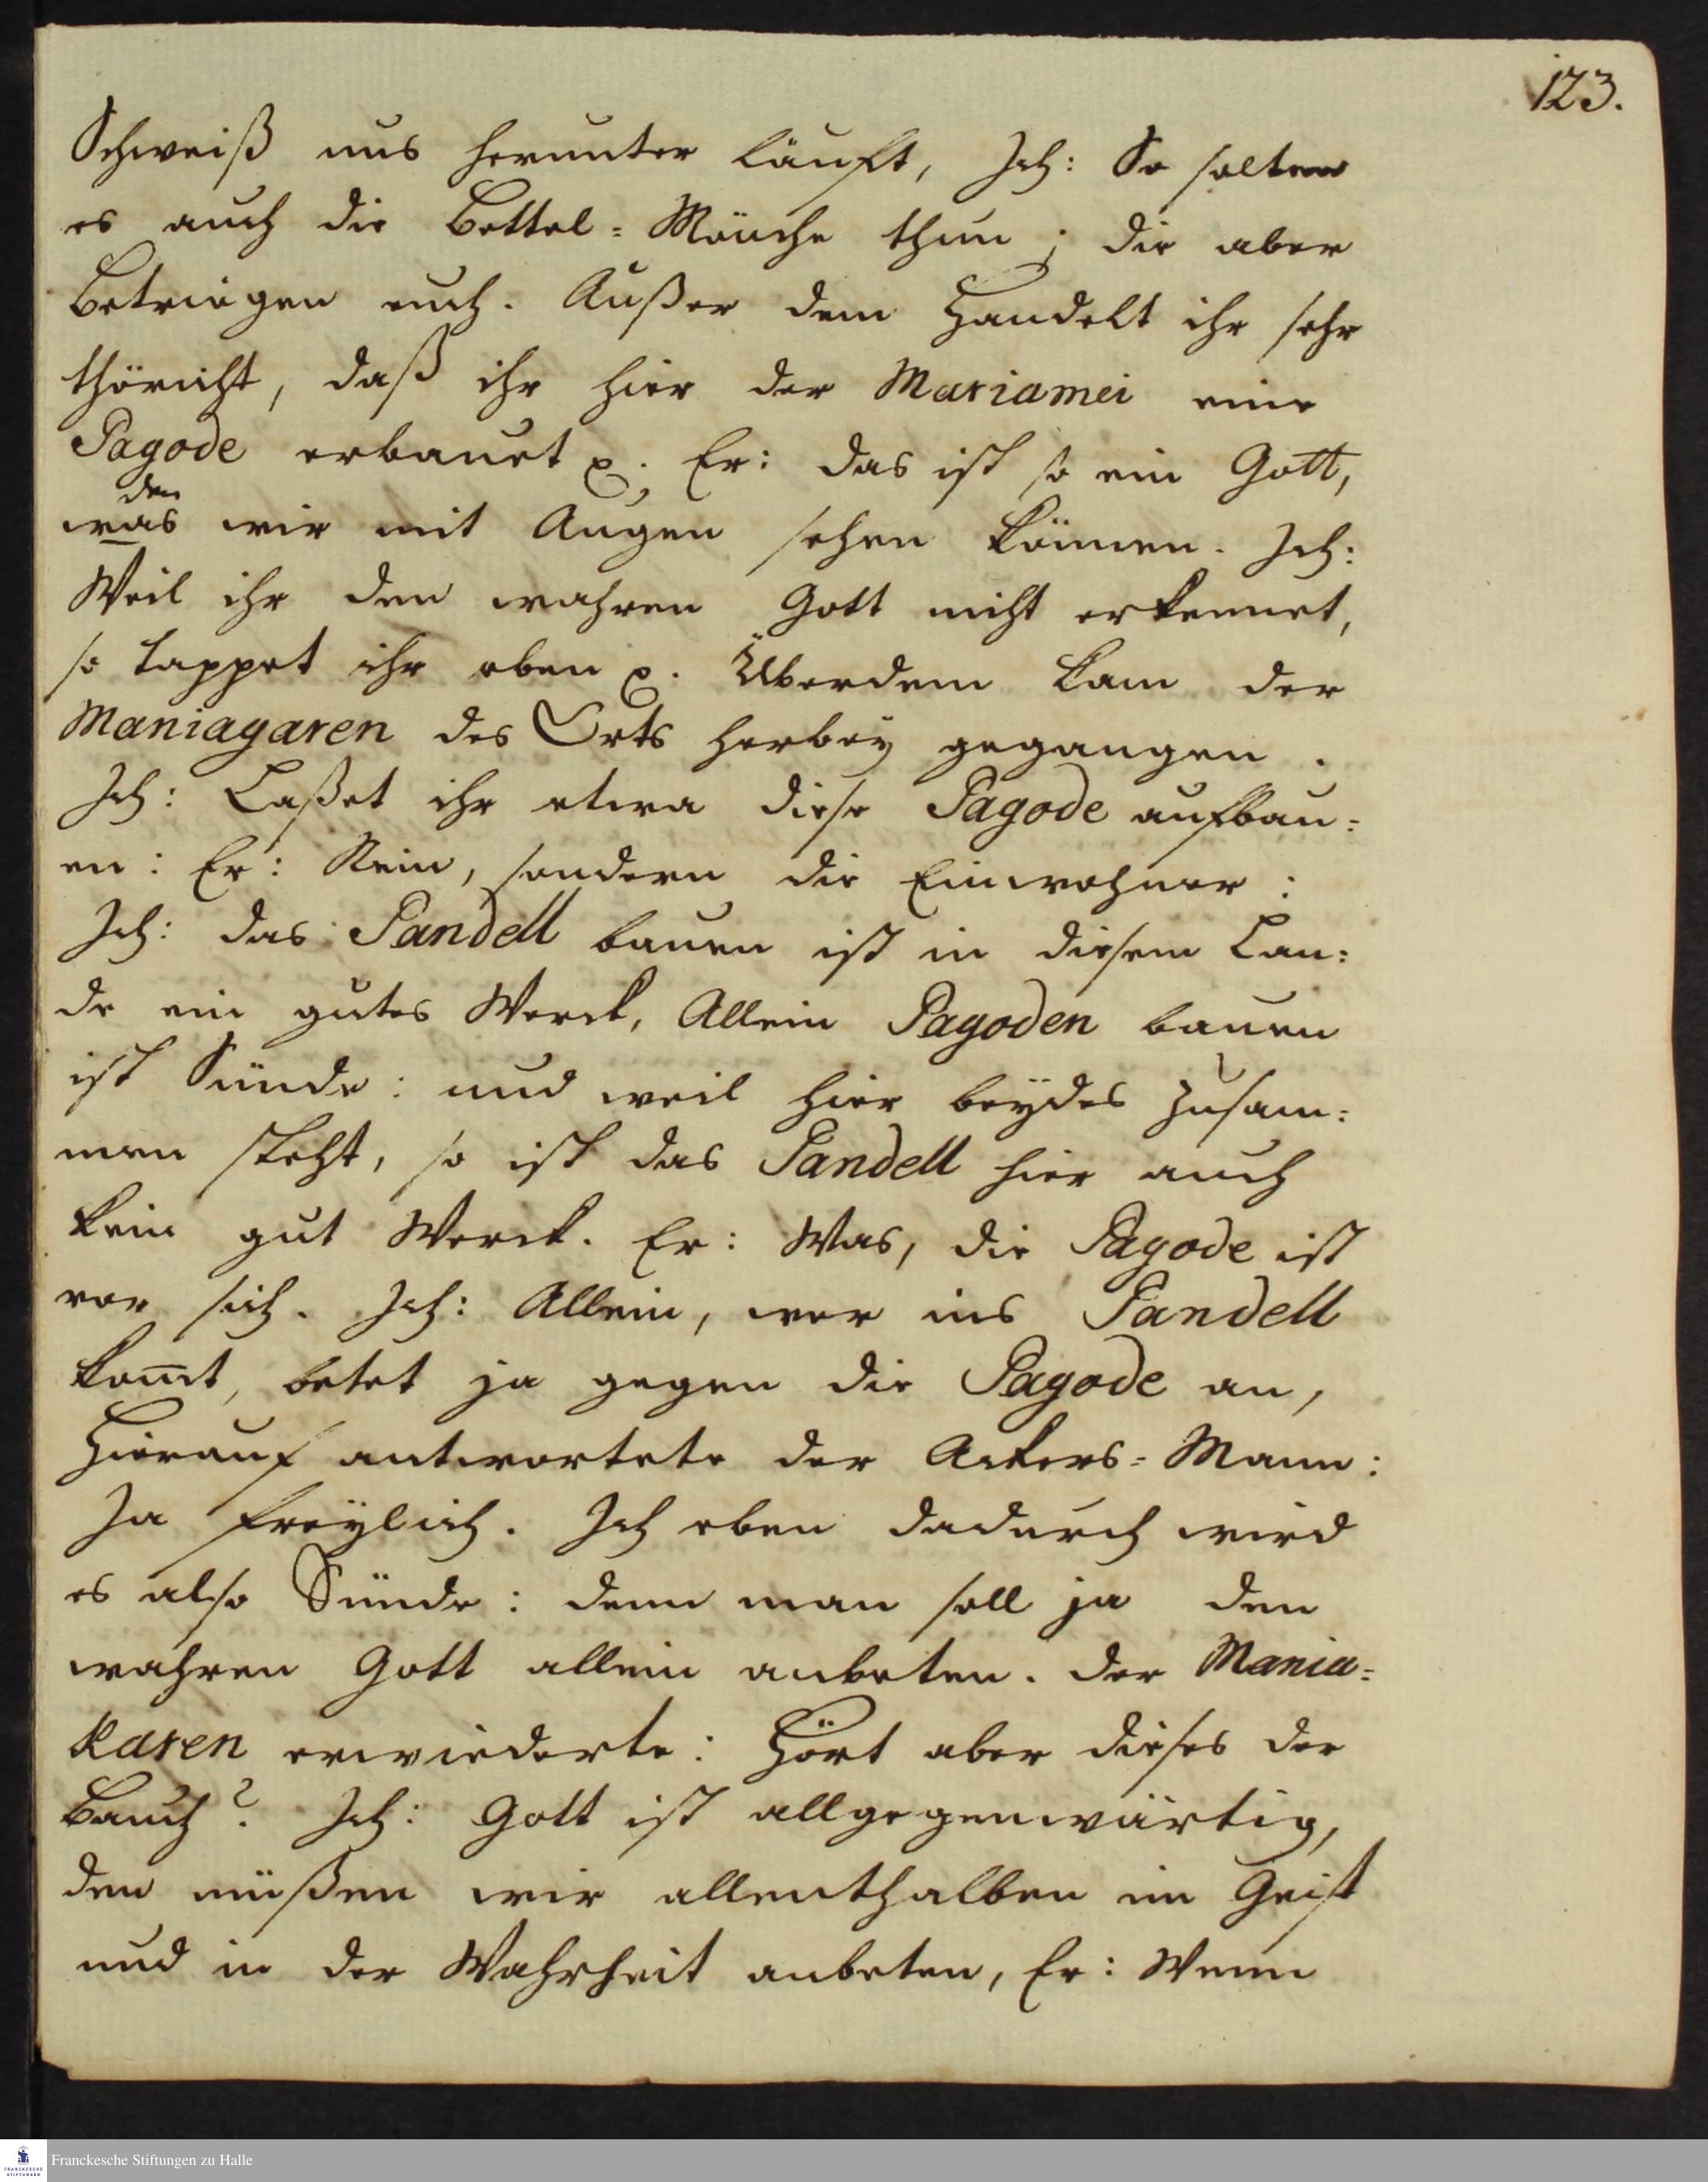 123.
Schweiß uns herunter läuft, Ich: So solten
es auch die Bettel-Mönche thun; die aber
Betriegen euch. Außer dem Handelt ihr sehr
thöricht, daß ihr hier der Mariamei eine
Pagode erbauet p. Er: das ist so ein Gott,
den
was wir mit Augen sehen können. Ich:
Weil ihr den wahren Gott nicht erkennet,
so tappet ihr eben p. Überdem kam der
Maniagaren des Orts herbey gegangen.
Ich: Laßet ihr etwa diese Pagode aufbau-
en: Er: Nein, sondern die Einwohner:
Ich: das Pandell bauen ist in diesem Lan-
de ein gutes Werck, Allein Pagoden bauen
ist Sünde: und weil hier beydes zusam-
men steht, so ist das Pandell hier auch
kein gut Werck. Er: Was, die Pagode ist
vor sich. Ich: Allein, wer ins Pandell
kom̅t, betet ja gegen die Pagode an,
Hierauf antwortete der Ackers-Mann:
Ja freylich. Ich eben dadurch wird
es also Sünde: denn man soll ja den
wahren Gott allein anbeten. der Mania-
karen erwiederte: Hört aber dieses der
Bauch? Ich: Gott ist allgegenwärtig,
den müßen wir allenthalben im Geist
und in der Wahrheit anbeten, Er: Wenn
Franckesche Stiftungen zu Halle
FRANCKESCHE
STIFTUNGEN